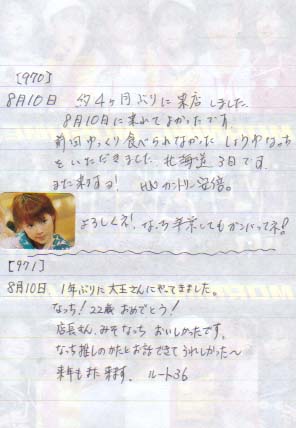 [970]
8月10日 約4ヶ月ぶりに来店しました。
8月10日に来れてよかったです。
前回ゆっくり食べられなかったしょうゆなっち
をいただきました。北海道3日です。
また来ますョ! HN カントリー安倍。
よろしくネ! なっち卒業してもガンバッてネ!
[971]
8月10日、1年ぶりに大王さんにやってきました。
なっち!22歳おめでとう!
店長さん、みそなっちおいしかったです。
なっち推しのかたとお話できてうれしかった〜
来年もまた来ます。 ルート36